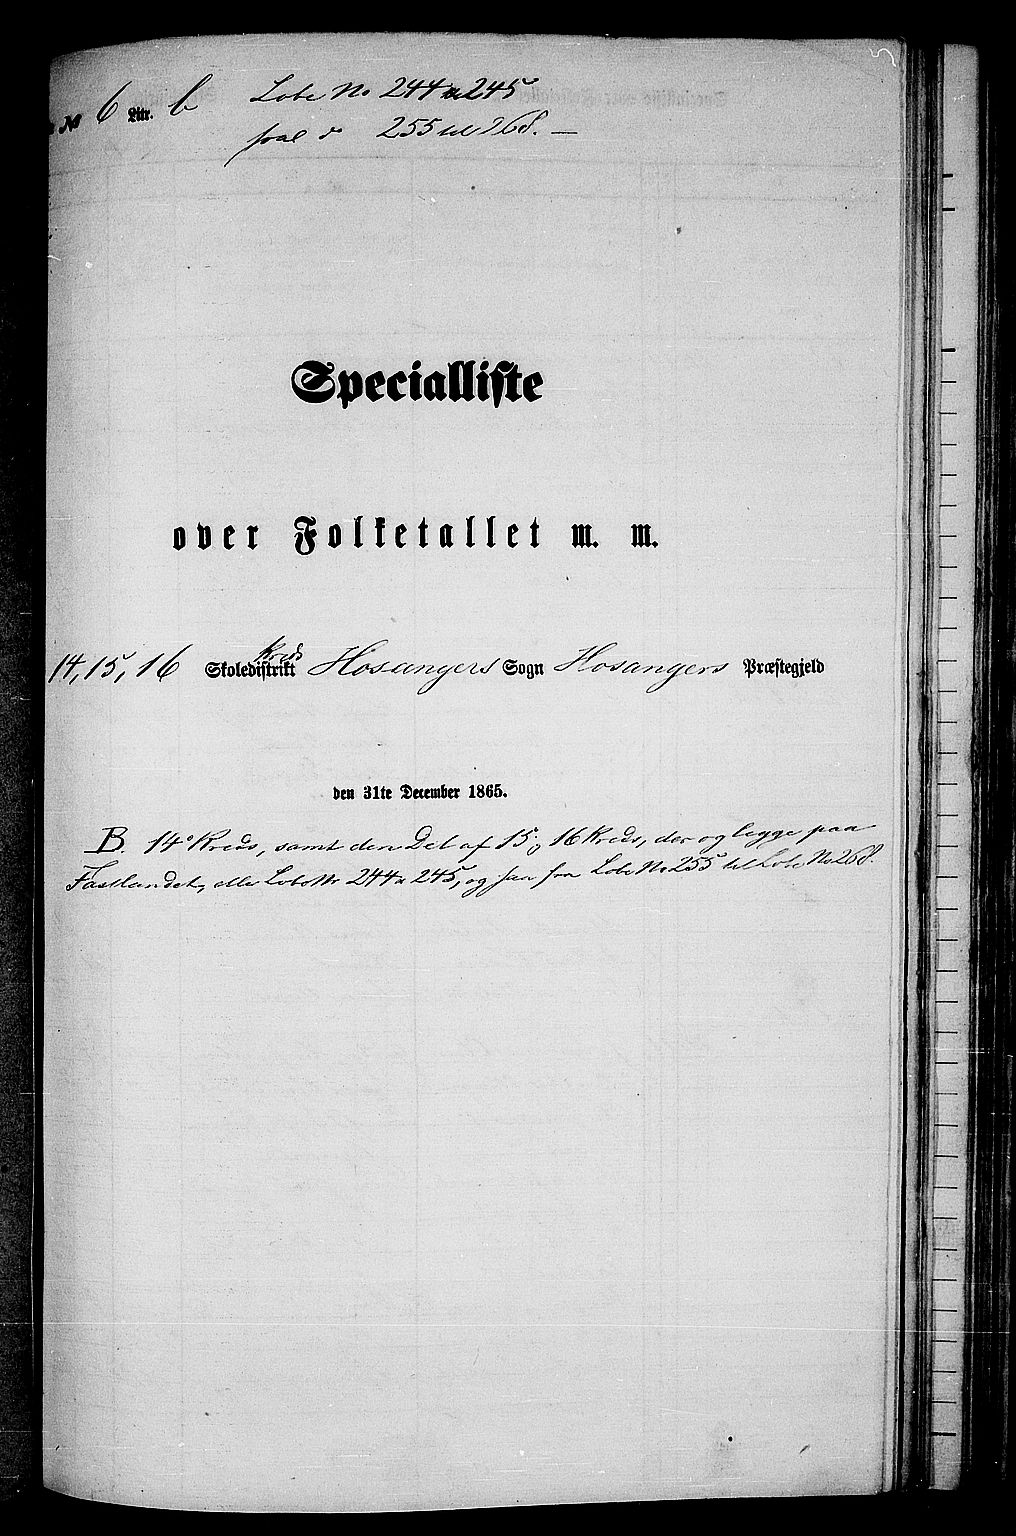 № 6 Litr. b Løbe No 244 & 245
saal d° 255 til 268. —
Specialliste
over Folketallet m. m.
Kreds
14, 15, 16 Skoledistrikt Hosangers Sogn Hosangers Præstegjeld
den 31te December 1865.
B. 14° Kreds, samt den Del af 15 og 16 Kreds, der og ligge paa
Fastlandet, elle LøbeNr 244 & 245, og saa fra Løbe No 255 til Løbe No 268.